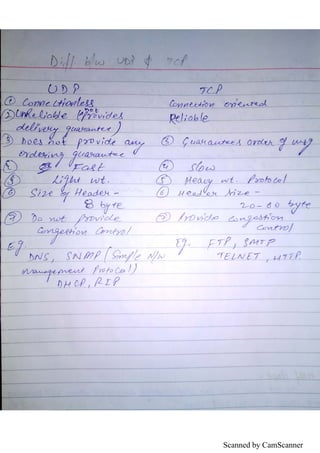 Diff b/w UDP & TCP
UDP TCP
① Connectionless Connection oriented
② UnReliable (Not Provides Reliable
delivery guarantee)
③ Does not provide any ③ Guarantees order of msg
ordering guarantee
④ Fast ④ Slow
⑤ Light wt. ⑤ Heavy wt. Protocol
⑥ Size of Header - ⑥ Header size -
8 byte 20-60 byte
⑦ Do not provide ⑦ Provides congestion
Congestion Control control
Eg. Eg. FTP, SMTP
DNS, SNMP (Simple N/w TELNET, HTTP
management Protocol)
DHCP, RIP
Scanned by CamScanner